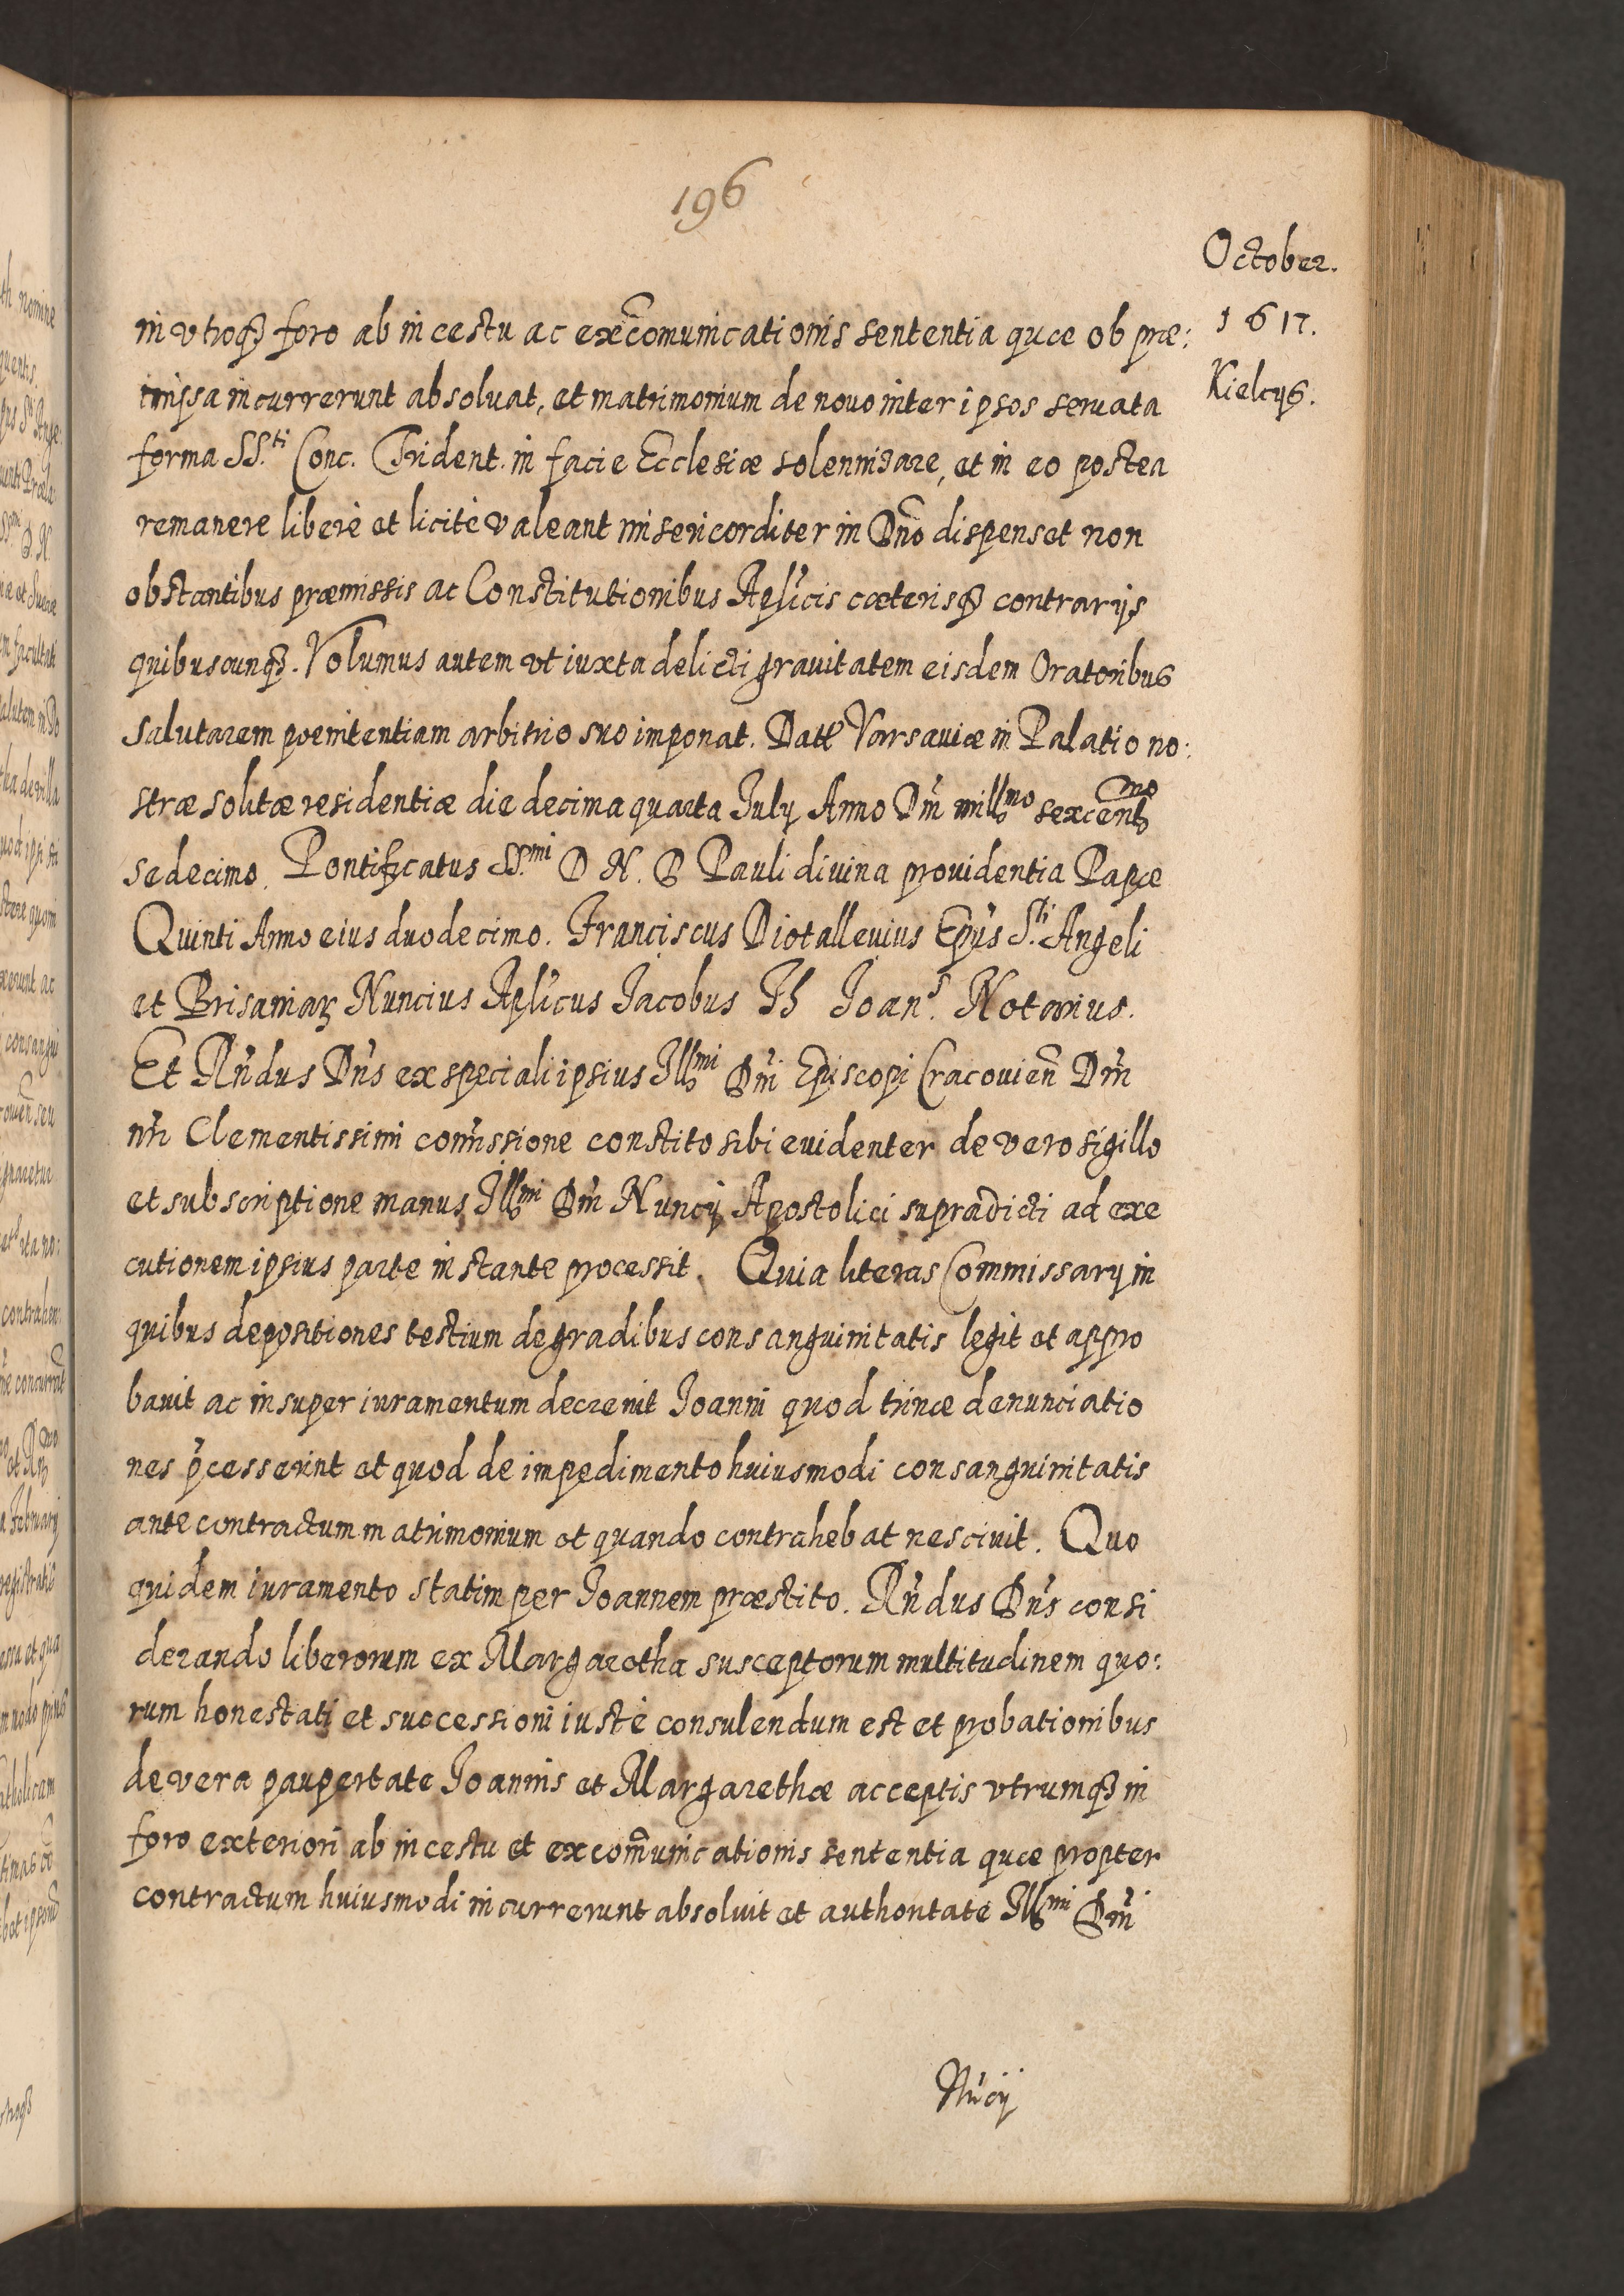 196
October.
1617.
Kielcijs.
in vtroq3 foro ab incestu ac excomunicationis sententia quæ ob præ:
missa incurrerunt absoluat, et matrimonium de nouo inter ipsos seruata
forma SS.ti Conc. Trident. in facie Ecclesiæ solennizare, et in eo postea
remanere liberè et licitè valeant misericorditer in Dno dispenset non
obstantibus præmissis ac Constitutionibus Aplicis cæterisq3 contrarijs
quibuscunq3. Volumus autem vt iuxta delicti grauitatem eisdem Oratoribus
salutarem poenitentiam arbitrio suo imponat. Datt Varsauiæ in Palatio no:
stræ solitæ residentiæ die decima quarta July Anno Dni millmo sexcentmo
sedecimo. Pontificatus SS.mi D N. D Pauli diuina prouidentia Papæ
Quinti Anno eius duodecimo. Franciscus Diotalleuius Epus S.ti Angeli
et Brisaniaz Nuncius Aplicus Jacobus Th Joan.s Notarius.
Et Rndus Dns ex speciali ipsius Illmi Dni Episcopi Cracouien Dni
nri Clementissimi comissione constito sibi euidenter de vero sigillo
et subscriptione manus Illmi Dni Nuncij Apostolici supradicti ad exe
cutionem ipsius parte instante processit. Quia literas Commissarij in
quibus depositiones testium de gradibus consanguinitatis legit et appro
bauit ac insuper iuramentum decreuit Joanni quod trinæ denunciatio
nes pcesserint et quod de impedimento huiusmodi consanguinitatis
ante contractum matrimonium et quando contrahebat nesciuit. Quo
quidem iuramento statim per Joannem præstito. Rndus Dns consi
derando liberorum ex Margaretha susceptorum multitudinem quo:
rum honestati et successioni iustè consulendum est et probationibus
de vera paupertate Joannis et Margarethæ acceptis vtrumq3 in
foro exteriori ab incestu et excomunicationis sententia quæ propter
contractum huiusmodi incurrerunt absoluit et authoritate Illmi Dni
Nucij